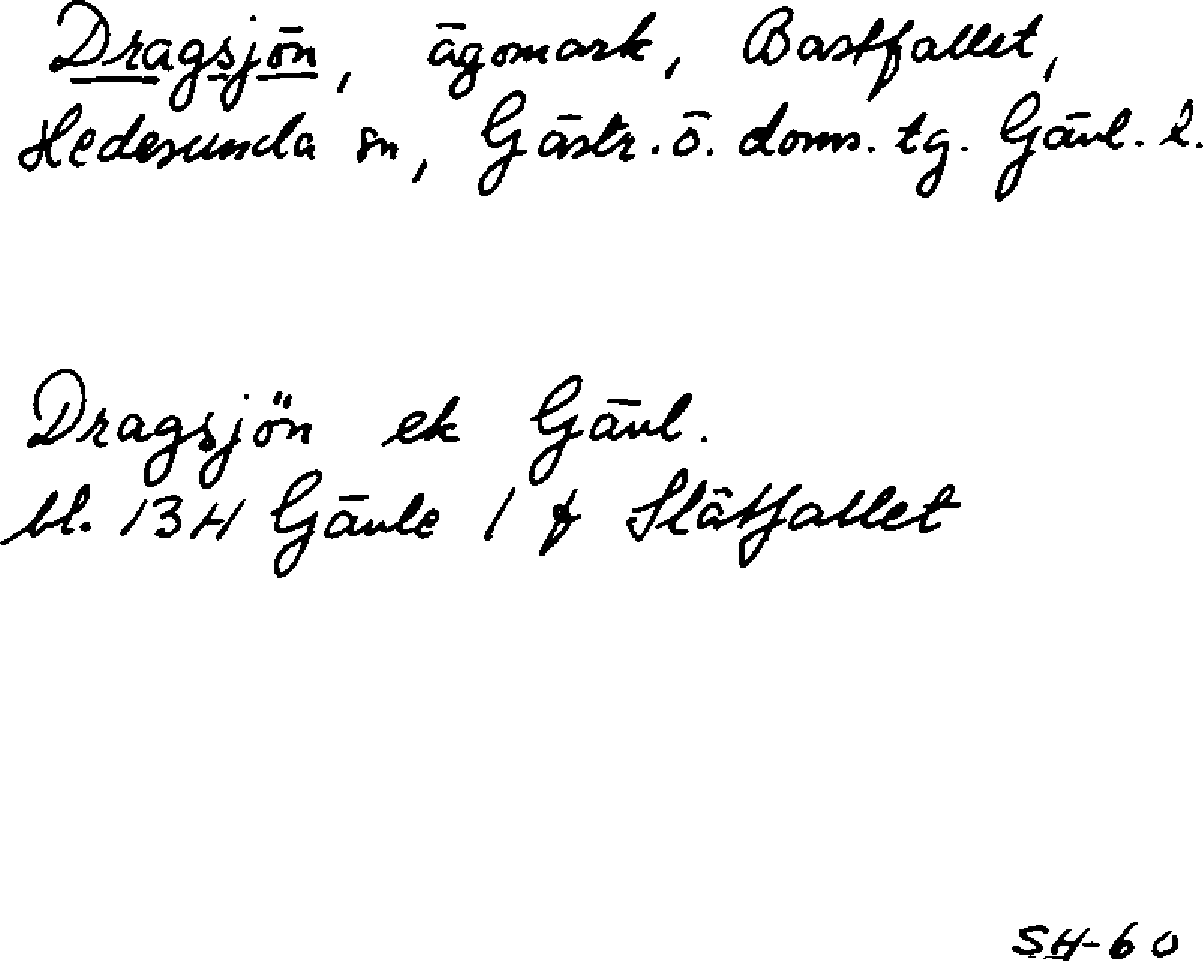 Dragsjön, ägomark, Bastfallet,
Hedesunda sn, Gästr. ö. doms. tg. Gävl. l.
Dragsjön ek Gävl.
bl. 13H Gävle 1 f Slåtfallet
SH-60